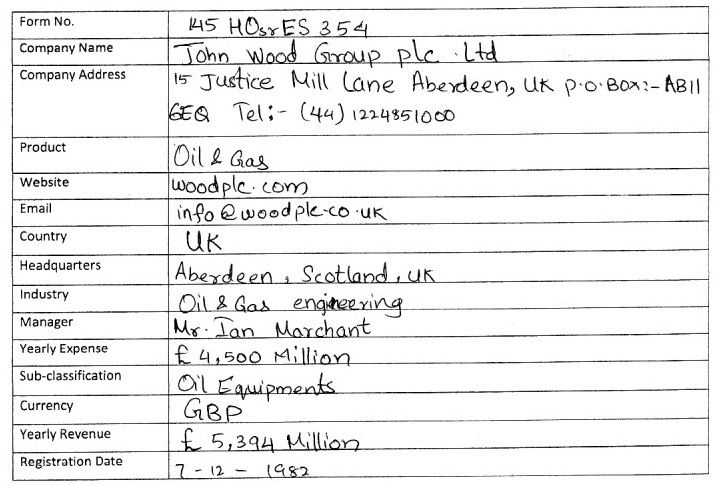 Form No. 145 HOsrES 354
Company Name John Wood Group plc . Ltd
Company Address 15 Justice Mill Lane Aberdeen, UK P.O.Box:- AB11
6EQ Tel:- (44) 1224851000
Product Oil & Gas
Website woodplc.com
Email info@woodplc.co.uk
Country UK
Headquarters Aberdeen, Scotland, UK
Industry Oil & Gas engineering
Manager Mr. Ian Marchant
Yearly Expense £ 4,500 Million
Sub-classification Oil Equipments
Currency GBP
Yearly Revenue £ 5,394 Million
Registration Date 7-12-1982